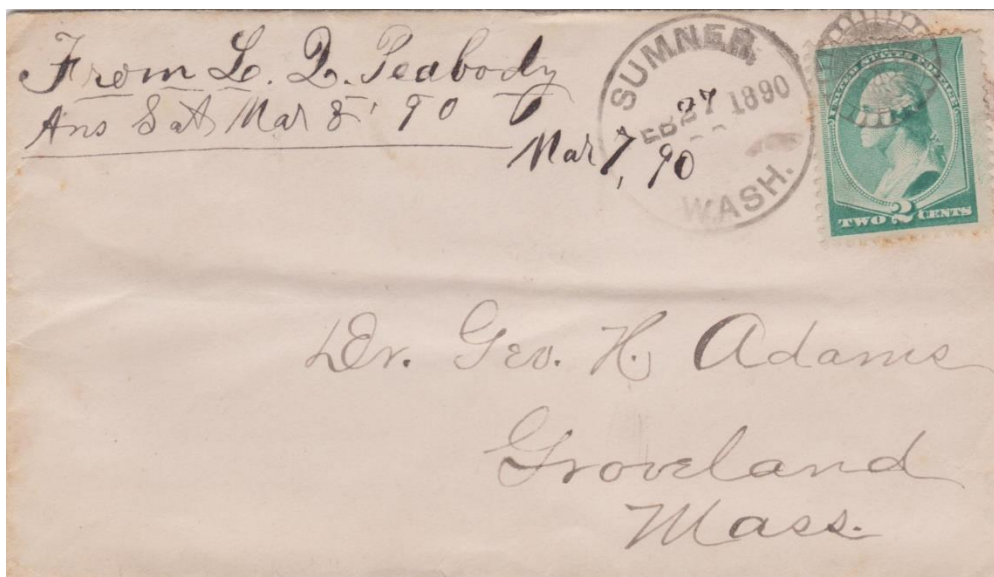 From L. Q. Peabody
Ans Sat Mar 8' 90
Mar 7, 90
SUMNER,
FEB 27 1890
WASH.
UNITED STATES POSTAGE
TWO 2 CENTS
Dr. Geo. H. Adams
Groveland
Mass.